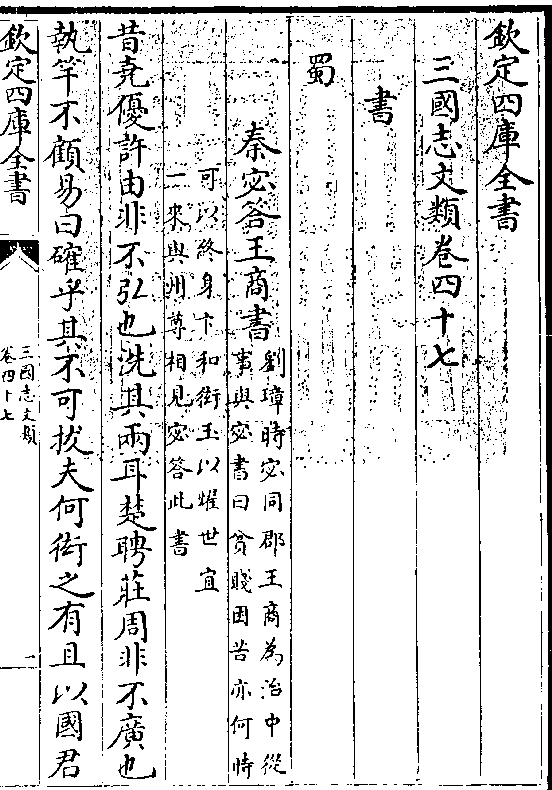 欽定四庫全書
三國志文類卷四十七
書
蜀
秦宓答王商書
劉璋時宓同郡王商為治中從
事與宓書曰貧賤困苦亦何時
可以終身卞和衒玉以燿世宜
一來與州尊相見宓答此書
昔堯優許由非不弘也洗其兩耳楚聘莊周非不廣也
執竿不顧易曰確乎其不可拔夫何衒之有且以國君
欽定四庫全書
三國志文類
卷四十七
一